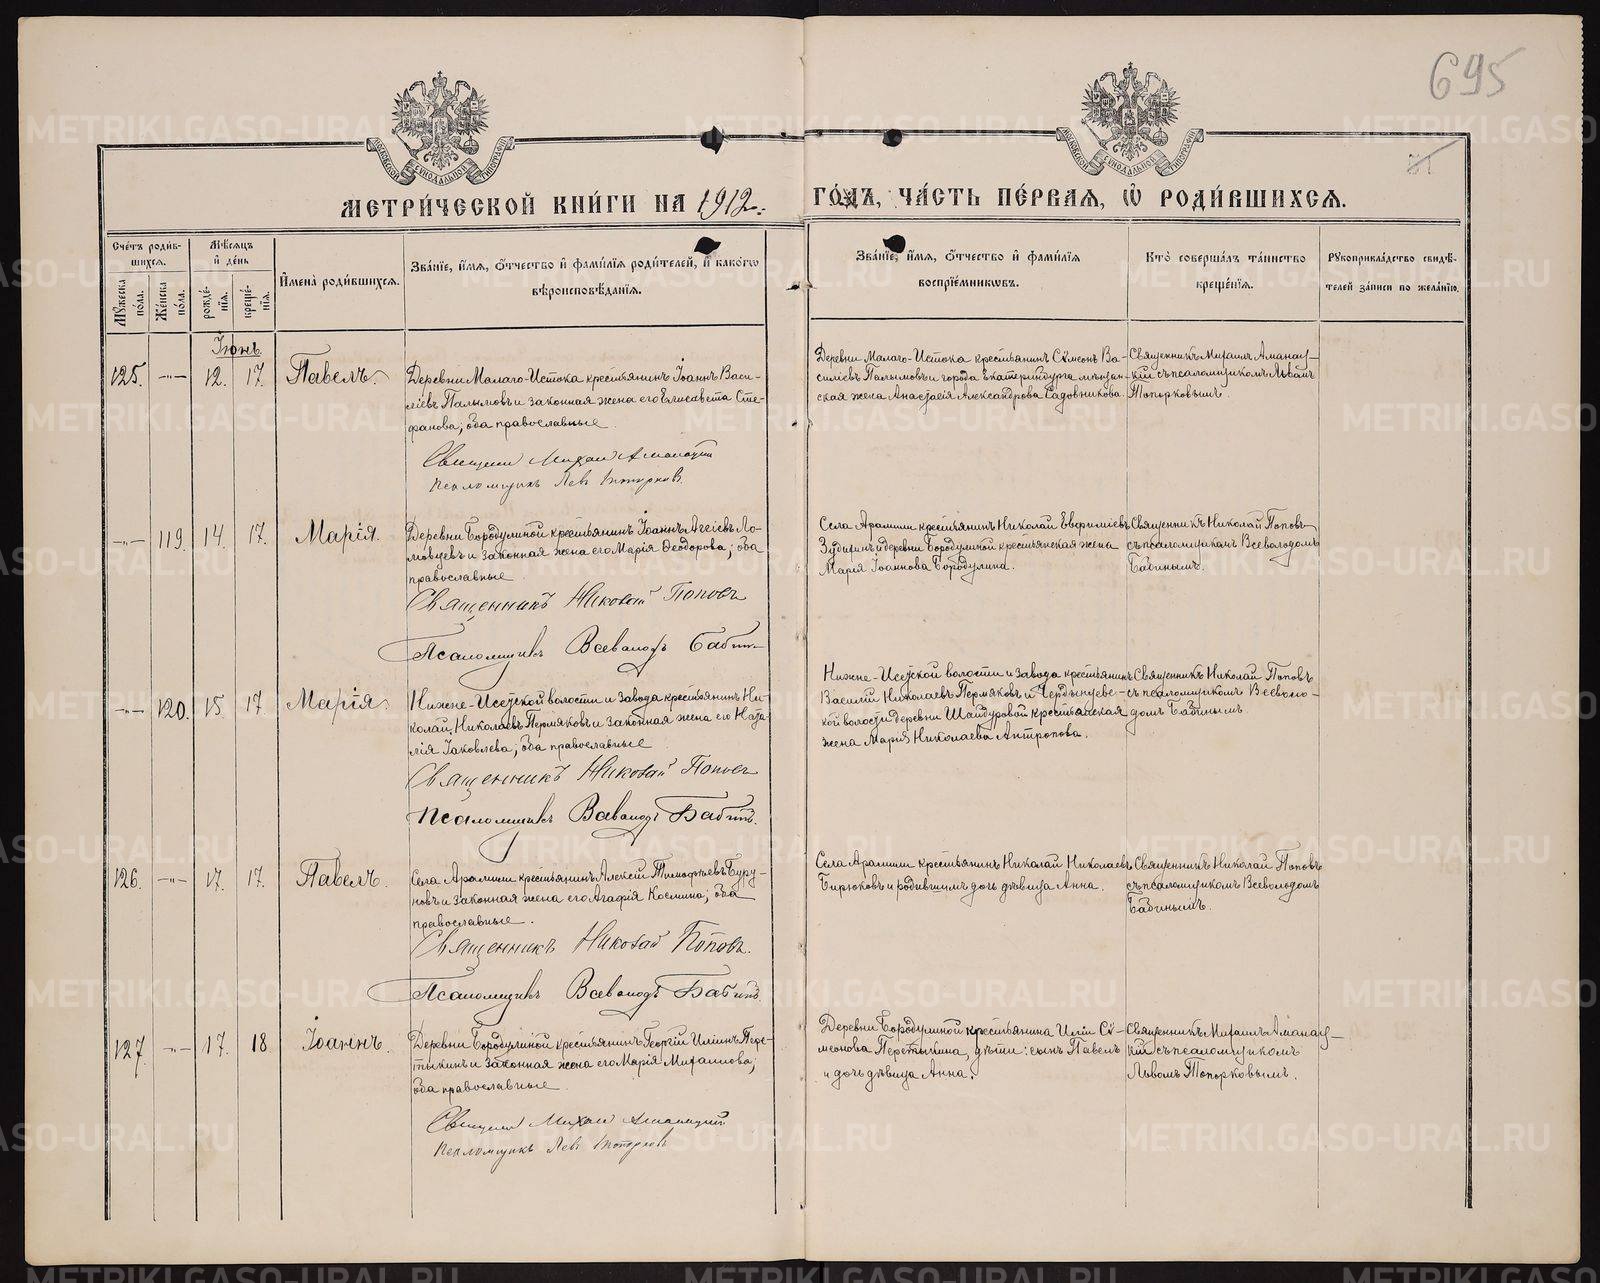 695
МОСКОВСКОЙ СѴНОДАЛЬНОЙ ТИПОГРАФІИ
МОСКОВСКОЙ СѴНОДАЛЬНОЙ ТИПОГРАФІИ
МЕТРИ́ЧЕСКОЙ КНИ́ГИ НА 1912. ГО́ДЪ, ЧА́СТЬ ПЕ́РВАѦ, Ѡ҆ РОДИ́ВШИХСѦ.
Сче́тъ роди́в-
шихсѧ.
Мꙋжеска по́ла.
Же́нска по́ла.
Мѣ́сѧцъ
и҆ де́нь
рожде́нїѧ.
креще́нїѧ.
И҆мена̀ роди́вшихсѧ.
Зва́нїе, и҆́мѧ, ѻ҆́тчество и҆ фами́лїѧ роди́телей, и҆ како́гѡ
вѣроисповѣ́данїѧ.
Зва́нїе, и҆́мѧ, ѻ҆́тчество и҆ фами́лїѧ
воспрїе́мникѡвъ.
Кто̀ соверша́лъ та́инство
креще́нїѧ.
Рꙋкоприкла́дство свидѣ́-
телей за́писи по жела́нїю.
Іюнь.
125. -"- 12. 17. Павелъ.
Деревни Малаго-Истока крестьянинъ Іоаннъ Васи-
ліевъ Палымовъ и законная жена его Елисавета Сте-
фанова; оба православные.
Священ. Михаил Аманацкий
Псаломщикъ Левъ Топорков.
Деревни Малаго-Истока крестьянинъ Сѵмеонъ Ва-
силіевъ Палымовъ и города Екатеринбурга мѣщан-
ская жена Анастасія Александрова Садовникова.
Священникъ Михаилъ Аманац-
кій съ псаломщикомъ Львомъ
Топорковымъ.
-"- 119. 14. 17. Марія.
Деревни Бородулиной крестьянинъ Іоаннъ Агеіевъ Ло-
мовцевъ и законная жена его Марія Ѳеодорова; оба
православные
Священникъ Николай Поповъ
Псаломщикъ Всеволодъ Бабинъ
Села Арамили крестьянинъ Николай Евфиміевъ
Зудихинъ и деревни Бородулиной крестьянская жена
Марія Іоаннова Бородулина.
Священникъ Николай Поповъ
съ псаломщикомъ Всеволодомъ
Бабинымъ.
-"- 120. 15. 17 Марія.
Нижне-Исетской волости и завода крестьянинъ Ни-
колай Николаевъ Пермяковъ и законная жена его Ната-
лія Іаковлева; оба православные
Священникъ Николай Поповъ
Псаломщикъ Всеволодъ Бабинъ.
Нижне-Исетской волости и завода крестьянинъ
Василій Николаевъ Пермяковъ и Чердынцев-
кой волости деревни Шайдуровой крестьянская
жена Марія Николаева Антропова.
Священникъ Николай Поповъ
съ псаломщикомъ Всеволо-
домъ Бабинымъ.
126. -"- 17. 17. Павелъ.
Села Арамили крестьянинъ Алексій Тимофѣевъ Буру-
новъ и законная жена его Агафія Космина; оба
православные.
Священникъ Николай Поповъ.
Псаломщикъ Всеволодъ Бабинъ
Села Арамили крестьянинъ Николай Николаевъ
Бирюковъ и родившихъ дочь дѣвица Анна.
Священникъ Николай Поповъ
съ псаломщикомъ Всеволодомъ
Бабинымъ.
127. -"- 17. 18 Іоаннъ.
Деревни Бородулиной крестьянинъ Георгій Иліинъ Пере-
тыкинъ и законная жена его Марія Михаилова;
оба православные
Священ. Михаил Аманацкий
Псаломщикъ Левъ Топорков
Деревни Бородулиной крестьянина Иліи Сѵ-
меонова Перетыкина, дѣти: сынъ Павелъ
и дочь дѣвица Анна.
Священникъ Михаилъ Аманац-
кій съ псаломщикомъ
Львомъ Топорковымъ.
METRIKI.GASO-URAL.RU